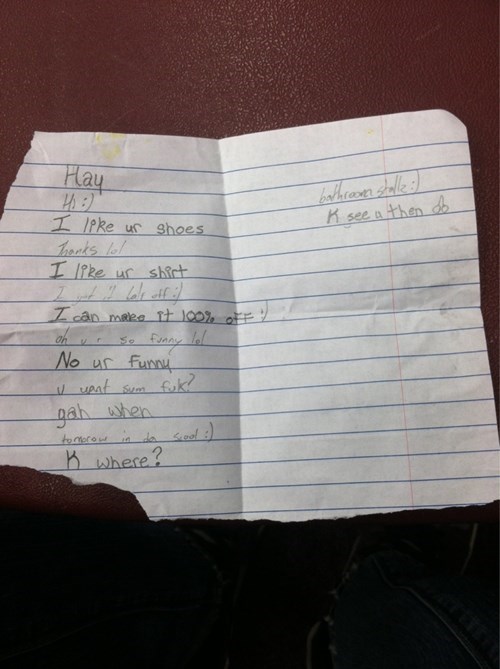 Hay
Hi :)
I like ur shoes
Thanks lol
I like ur shirt
I got it off :)
I can make it 100% off :)
oh u r so funny lol
No ur Funny
u want sum fuk?
gah when
tomorow in da scool :)
K where?
bathroom stalls :)
K see u then